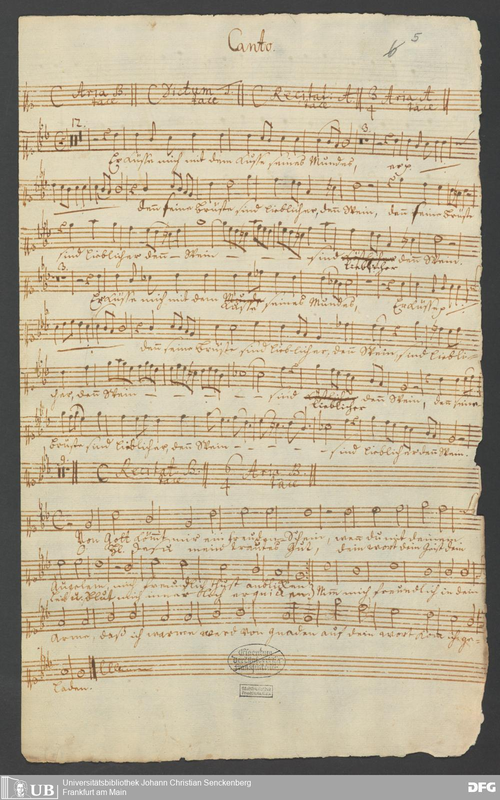 5
Canto.
C Aria B tacet || C Dictum T tacet || C Recitat A tacet || 3/4 Aria A tacet ||
12 3
Er küsse mich mit dem Kusse seines Mundes,
denn seine Brüste sind lieblicher, denn Wein, denn seine Brüste
sind lieblicher denn - Wein - - - - sind lieblicher denn Wein.
13.
Er küsse mich mit dem Kusse seines Mundes, Er küsse
denn seine Brüste sind lieblicher, denn Wein, sind liebli-
cher, denn Wein - - - - - sind lieblicher denn Wein, denn seine
Brüste sind lieblicher, denn Wein - - - - - sind lieblicher denn Wein.
C Recitat B || Aria B tacet ||
Von Gott kömt mir ein freuden Schein, wen du mit deinen
Herr Jesu mein trautes Gut, dein wort dein Geist dein
mich freundlich in dein
Arme, daß ich warme werd von gnaden auf dein wort kom ich ge-
laden.
UB
Universitätsbibliothek Johann Christian Senckenberg
Frankfurt am Main
DFG